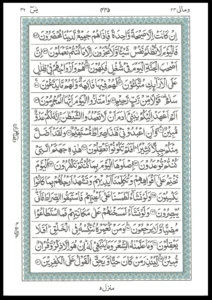 وَمَالِيَ ٢٣
٤٤٥
يٰسٓ ٣٦
اِنْ كَانَتْ اِلَّا صَيْحَةً وَّاحِدَةً فَاِذَا هُمْ جَمِيْعٌ لَّدَيْنَا مُحْضَرُوْنَ
فَالْيَوْمَ لَا تُظْلَمُ نَفْسٌ شَيْـًٔا وَّلَا تُجْزَوْنَ اِلَّا مَا كُنْتُمْ تَعْمَلُوْنَ اِنَّ
اَصْحٰبَ الْجَنَّةِ الْيَوْمَ فِيْ شُغُلٍ فٰكِهُوْنَ هُمْ وَاَزْوَاجُهُمْ فِيْ ظِلٰلٍ
عَلَى الْاَرَآئِكِ مُتَّكِـُٔوْنَ لَهُمْ فِيْهَا فَاكِهَةٌ وَّلَهُمْ مَّا يَدَّعُوْنَ
سَلٰمٌ قَوْلًا مِّنْ رَّبٍّ رَّحِيْمٍ وَامْتَازُوا الْيَوْمَ اَيُّهَا الْمُجْرِمُوْنَ
اَلَمْ اَعْهَدْ اِلَيْكُمْ يٰبَنِيْٓ اٰدَمَ اَنْ لَّا تَعْبُدُوا الشَّيْطٰنَ اِنَّهٗ لَكُمْ عَدُوٌّ
مُّبِيْنٌ وَّاَنِ اعْبُدُوْنِيْ هٰذَا صِرَاطٌ مُّسْتَقِيْمٌ وَلَقَدْ اَضَلَّ مِنْكُمْ
جِبِلًّا كَثِيْرًا اَفَلَمْ تَكُوْنُوْا تَعْقِلُوْنَ هٰذِهٖ جَهَنَّمُ الَّتِيْ
كُنْتُمْ تُوْعَدُوْنَ اِصْلَوْهَا الْيَوْمَ بِمَا كُنْتُمْ تَكْفُرُوْنَ اَلْيَوْمَ
نَخْتِمُ عَلٰٓى اَفْوَاهِهِمْ وَتُكَلِّمُنَآ اَيْدِيْهِمْ وَتَشْهَدُ اَرْجُلُهُمْ بِمَا كَانُوْا
يَكْسِبُوْنَ وَلَوْ نَشَآءُ لَطَمَسْنَا عَلٰٓى اَعْيُنِهِمْ فَاسْتَبَقُوا الصِّرَاطَ فَاَنّٰى
يُبْصِرُوْنَ وَلَوْ نَشَآءُ لَمَسَخْنٰهُمْ عَلٰى مَكَانَتِهِمْ فَمَا اسْتَطَاعُوْا
مُضِيًّا وَّلَا يَرْجِعُوْنَ وَمَنْ نُّعَمِّرْهُ نُنَكِّسْهُ فِي الْخَلْقِ اَفَلَا
يَعْقِلُوْنَ وَمَا عَلَّمْنٰهُ الشِّعْرَ وَمَا يَنْۢبَغِيْ لَهٗ اِنْ هُوَ اِلَّا ذِكْرٌ وَّقُرْاٰنٌ
مُّبِيْنٌ لِّيُنْذِرَ مَنْ كَانَ حَيًّا وَّيَحِقَّ الْقَوْلُ عَلَى الْكٰفِرِيْنَ
منزل ٥